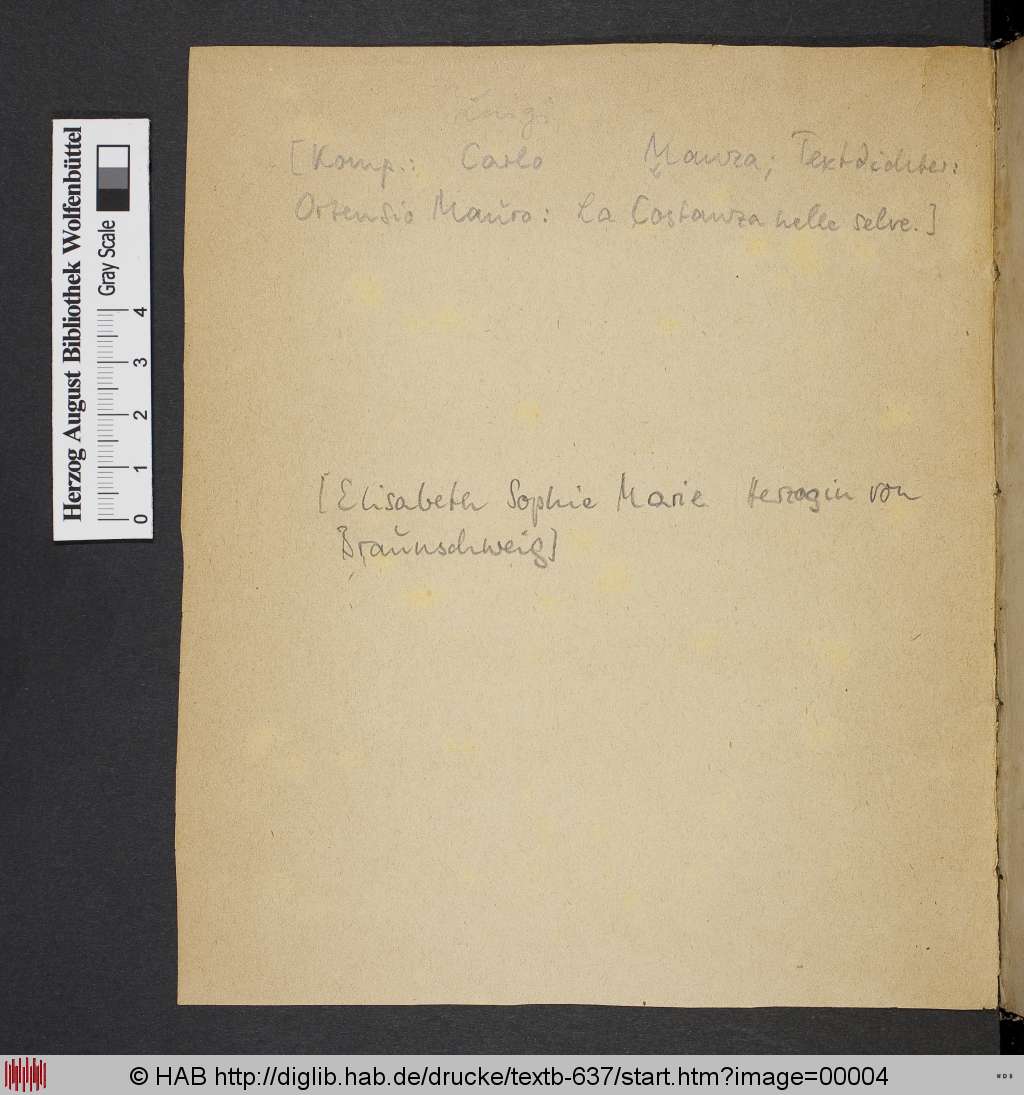 Luigi
[Komp.: Carlo Manza; Textdichter:
Ortensio Mauro: La Costanza nelle selve.]
[Elisabeth Sophie Marie Herzogin von
Braunschweig]
Herzog August Bibliothek Wolfenbüttel
Gray Scale
0 1 2 3 4
© HAB http://diglib.hab.de/drucke/textb-637/start.htm?image=00004
WDB